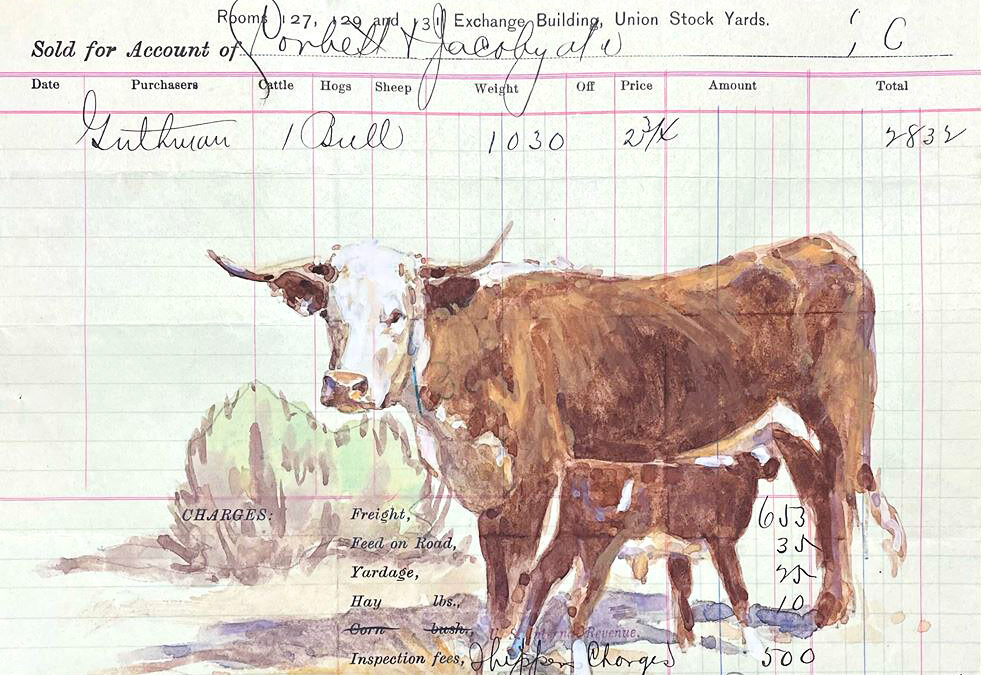 Rooms 127, 129 and 131 Exchange Building, Union Stock Yards.
Sold for Account of Corbett & Jacoby
Date Purchasers Cattle Hogs Sheep Weight Off Price Amount Total
Guthman 1 Bull 1030 2 3/4 2832
CHARGES: Freight, 653
Feed on Road, 35
Yardage, 25
Hay lbs., 10
Corn bush.,
U. S. Internal Revenue,
Inspection fees, Shippers Charges 500